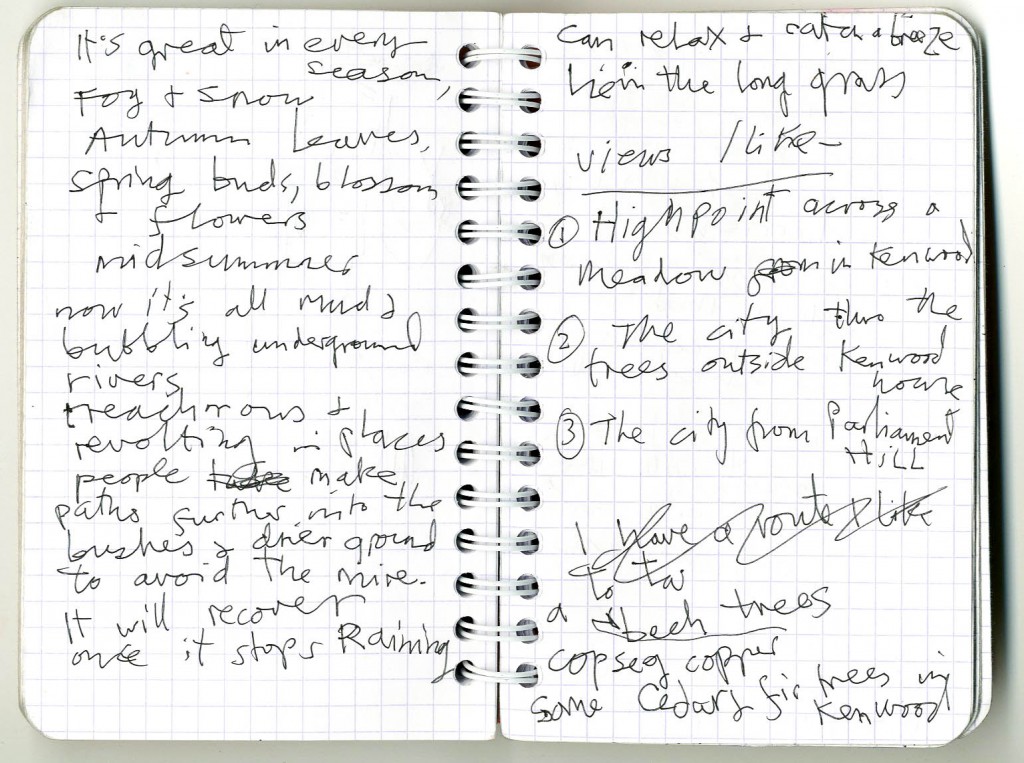 It's great in every
season,
Fog & snow
Autumn leaves,
spring buds, blossom
& flowers
midsummer
now it's all mud &
bubbling underground
rivers
treachrous &
revolting in places
people make
paths further into the
bushes & drier ground
to avoid the mire.
It will recover
once it stops Raining
can relax & catch a breeze
lie in the long grass
views I like-
① Highpoint across a
meadow in Kenwood
② The city thro the
trees outside Kenwood
house
③ The city from Parliament
HILL
I have a route I like
to ta
a beech trees
copse copper
some Cedars fir trees in
Kenwood